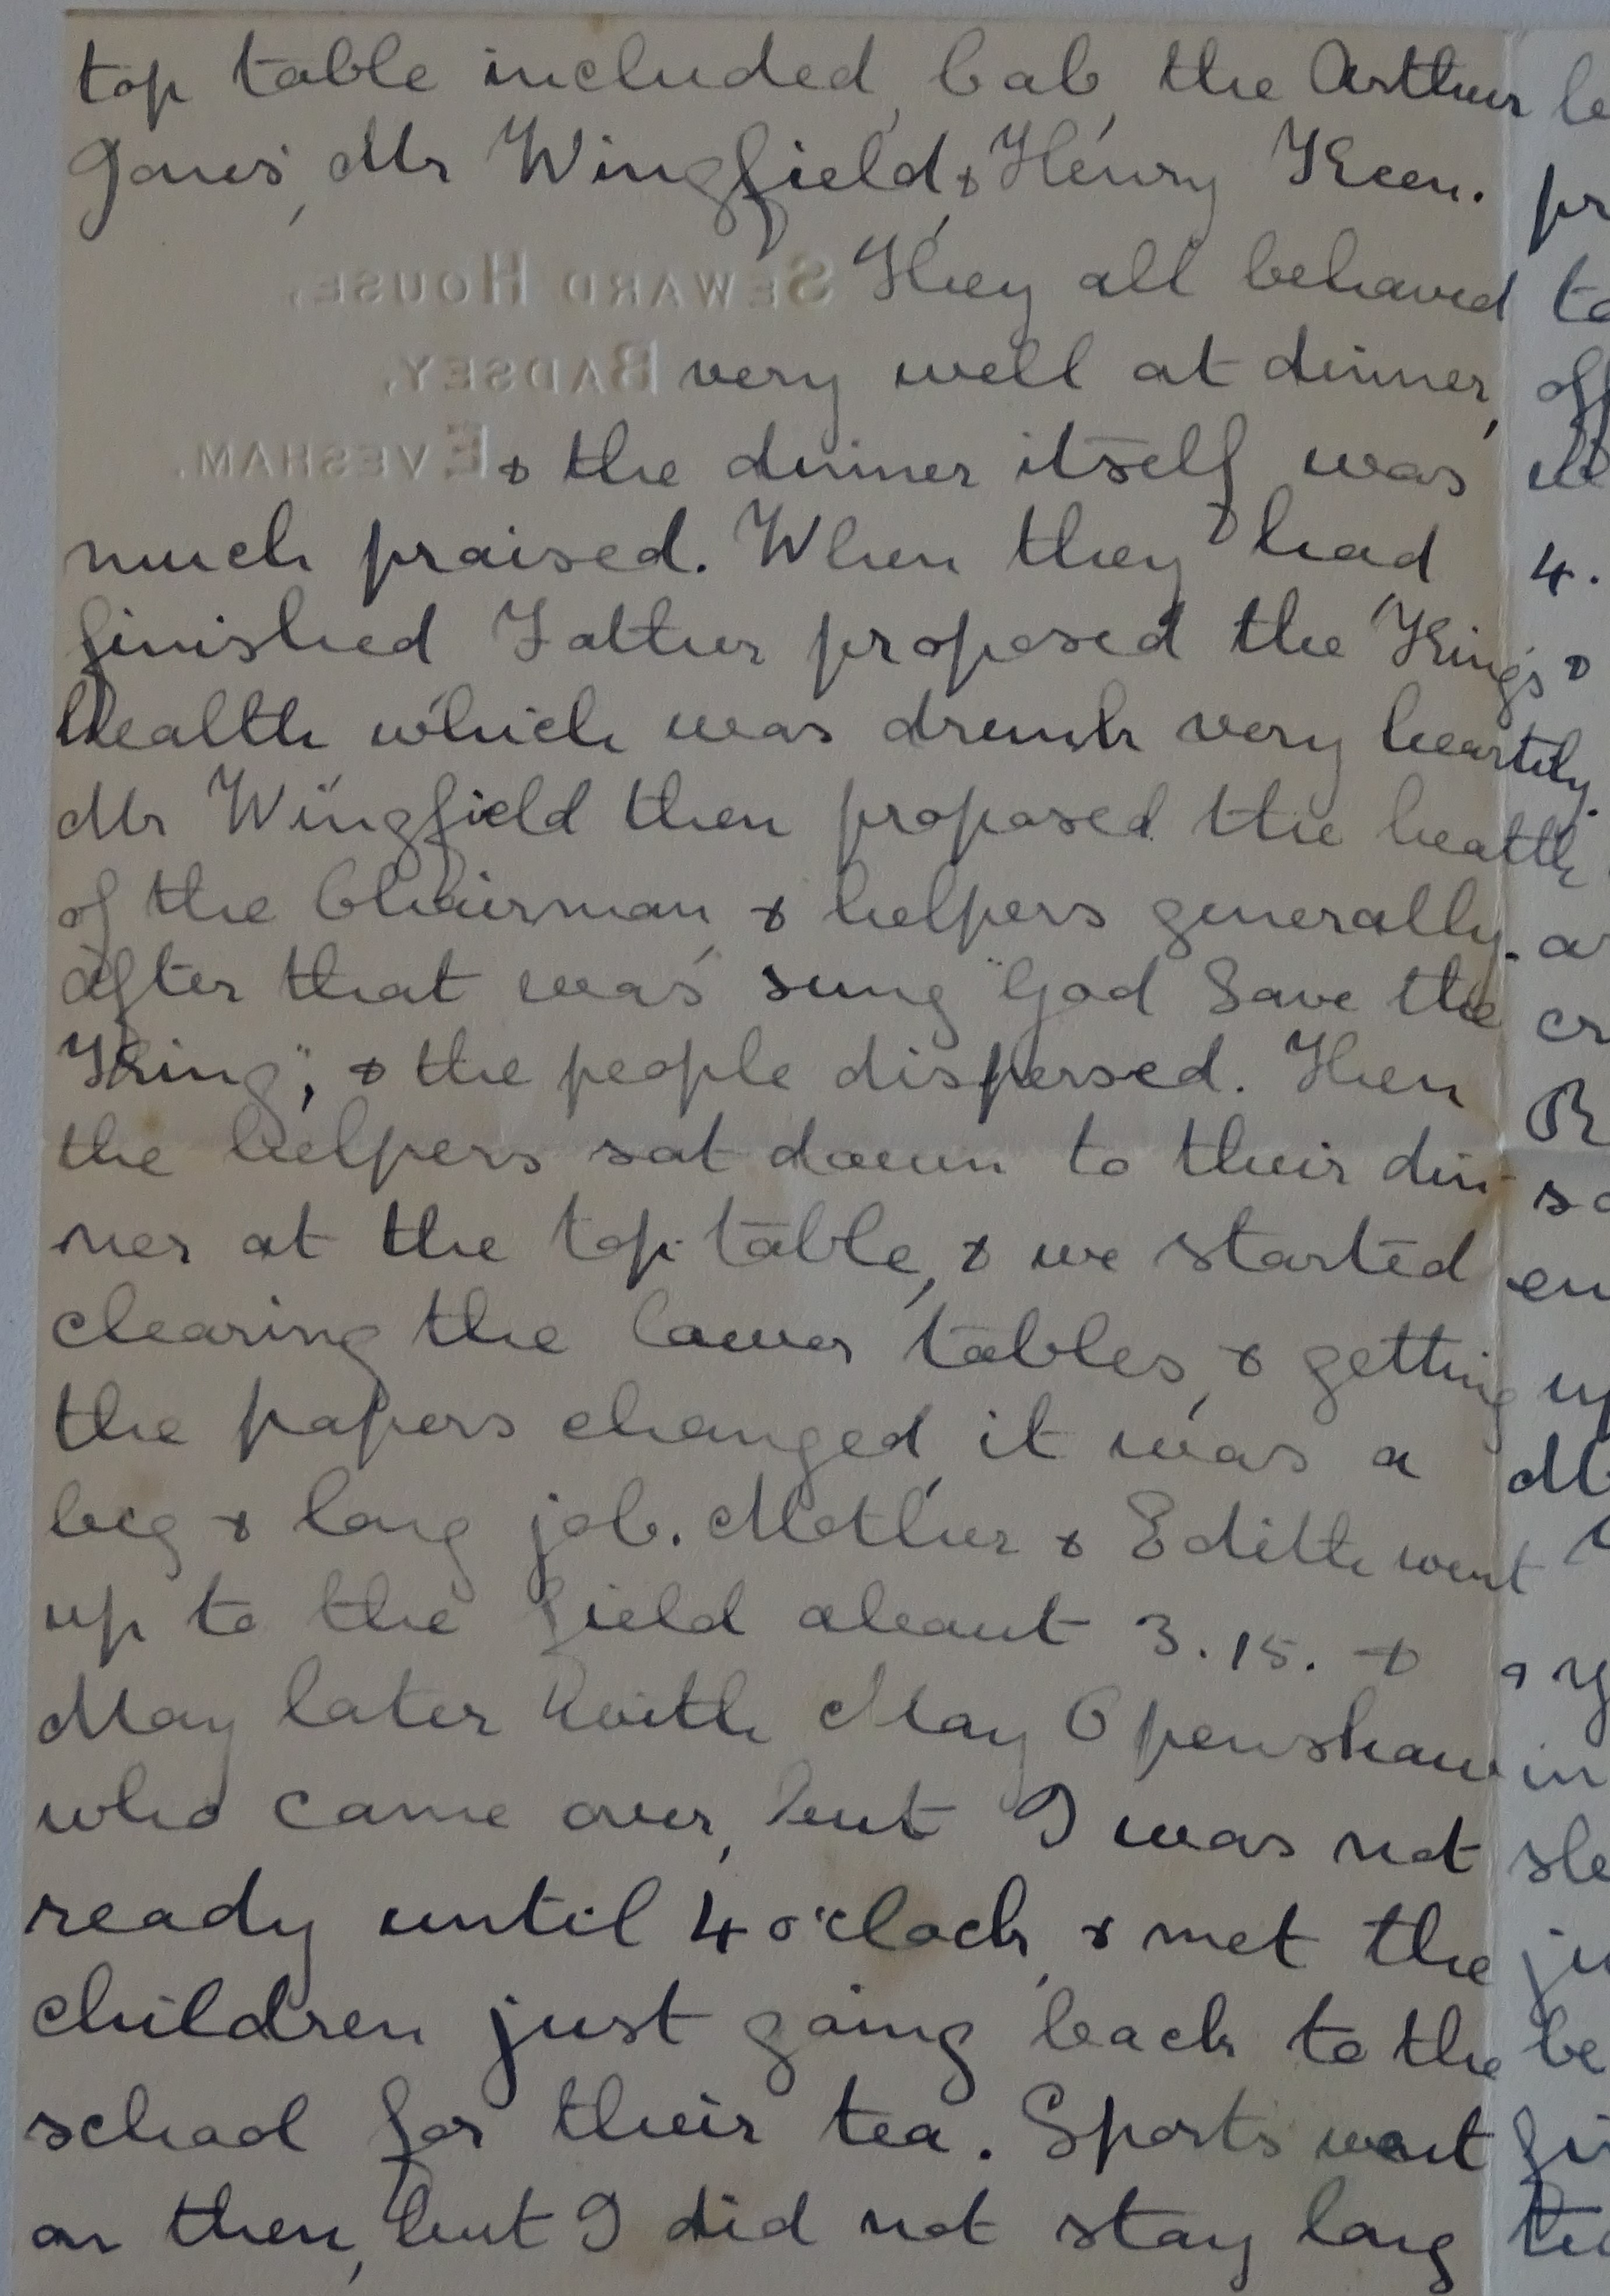 top table included, Cab, the Arthur
Jones', Mr Wingfield, & Henry Keen.
SEWARD HOUSE,
They all behaved
BADSEY,
very well at dinner,
EVESHAM.
& the dinner itself was
much praised. When they had
finished Father proposed the King's
health which was drunk very heartily.
Mr Wingfield then proposed the health
of the Chairman, & helpers generally.
after that was sung "God Save the
King", & the people dispersed. Then
the helpers sat down to their din-
ner at the top table, & we started
clearing the lower tables, & getting
the papers changed, it was a
big & long job. Mother & Edith went
up to the field about 3.15. &
May later with May Openshaw
who came over, but I was not
ready until 4 o'clock, & met the
children just going back to the
school for their tea. Sports went
on then, but I did not stay long
pr
to
off
4.
a
cr
R
so
en
up
M
in
sle
ju
be
fi